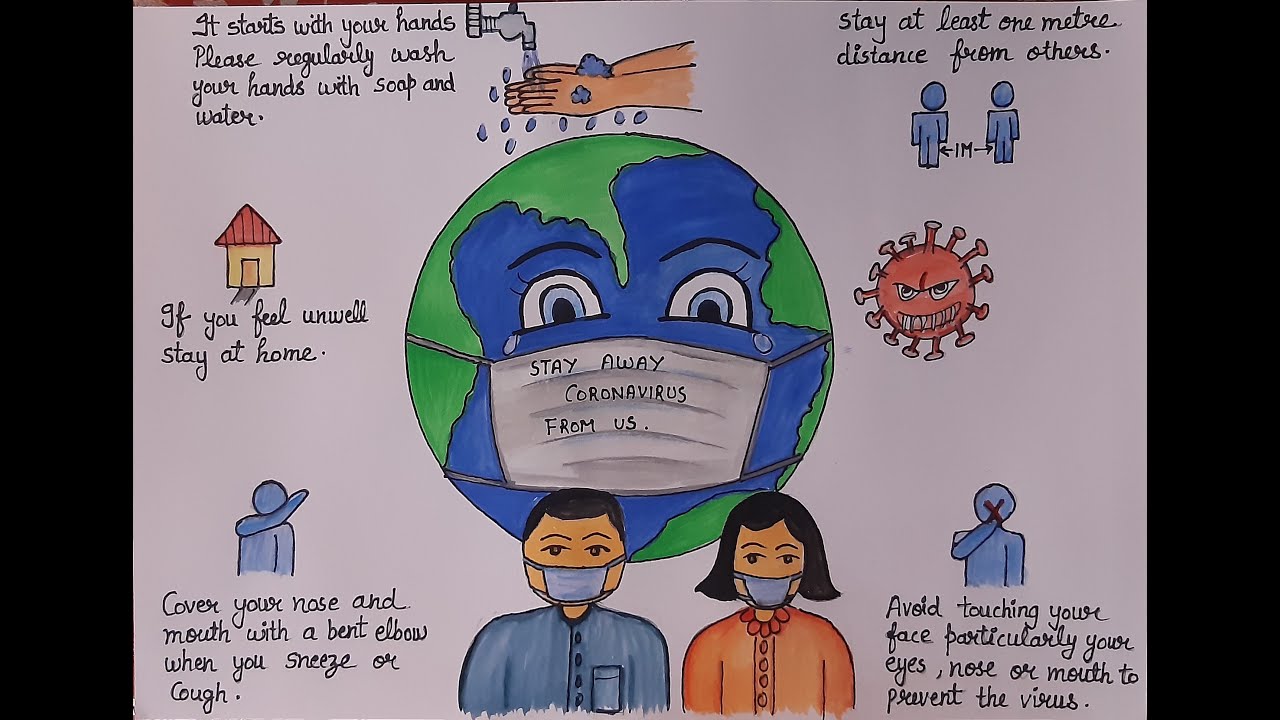 It starts with your hands
Please regularly wash
your hands with soap and
water.
stay at least one metre
distance from others.
←1M→
If you feel unwell
stay at home.
STAY AWAY
CORONAVIRUS
FROM US.
Cover your nose and
mouth with a bent elbow
when you sneeze or
Cough.
Avoid touching your
face particularly your
eyes, nose or mouth to
prevent the virus.